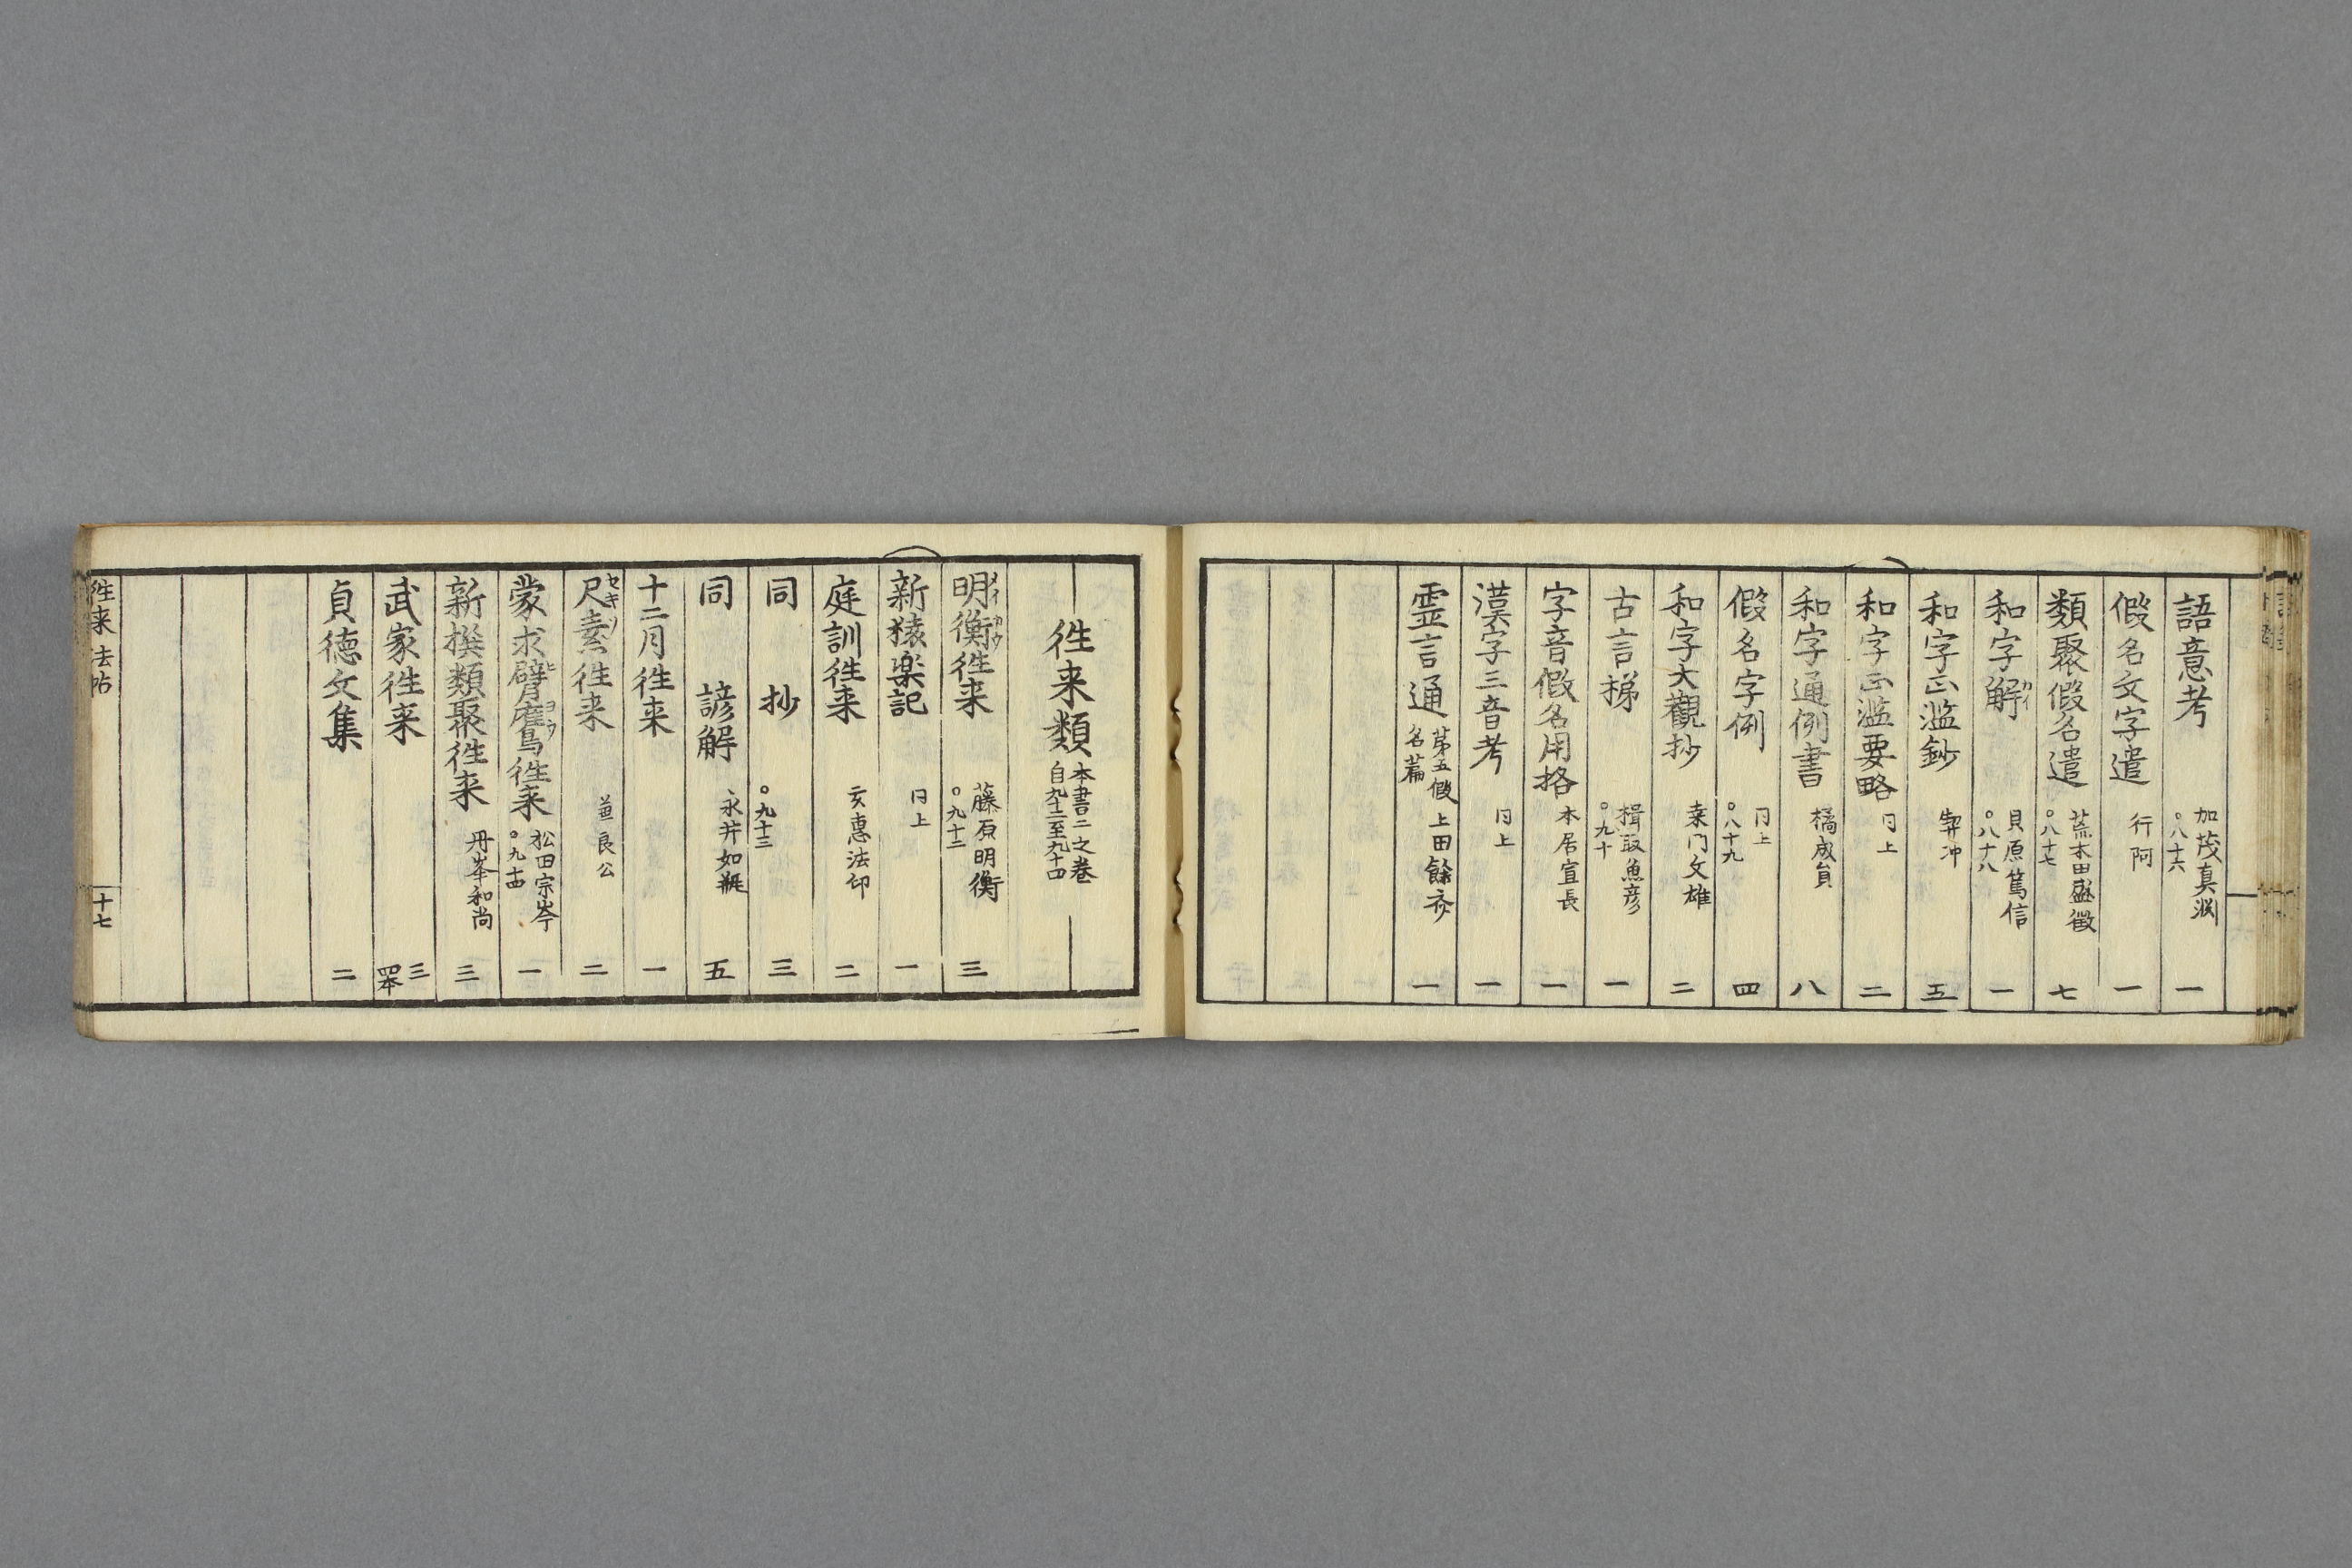 語意考 加茂真淵 〇八十六 一
假名文字遣 行阿 一
類聚假名遣 荒木田盛徴 〇八十七 七
和字解 カイ 貝原篤信 〇八十八 一
和字正濫鈔 契沖 五
和字正濫要略 同上 二
和字通例書 橘成員 八
假名字例 同上 〇八十九 四
和字大觀抄 桒门文雄 二
古言梯 楫取魚彦 〇九十 一
字音假名用格 本居宣長 一
漢字三音考 同上 一
霊言通 第五假名篇 上田餘斎 一
徃来類 本書二之巻 自九十二至九十四
明衡徃来 メイカウ 藤原明衡 〇九十二 三
新猿楽記 同上 一
庭訓徃来 玄惠法印 二
同 抄 〇九十三 三
同 諺解 永井如瓶 五
十二月徃来 一
尺素徃来 セキソ 兼良公 二
蒙求臂鷹徃来 ヒヨウ 松田宗岑 〇九十四 一
新撰類聚徃来 丹峯和尚 三
武家徃来 三 四本
貞徳文集 二
徃来 法帖 十七